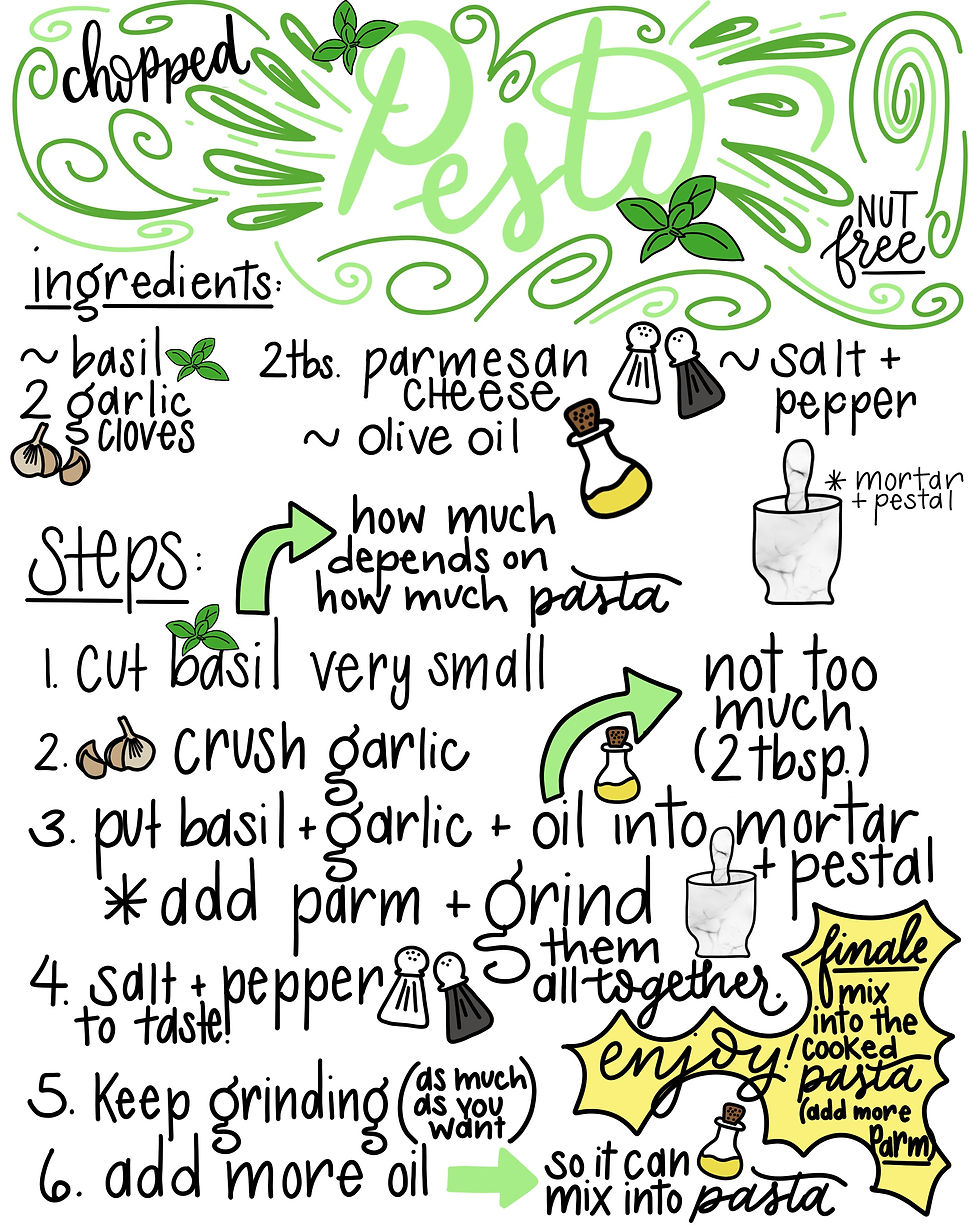 chopped
Pesto
NUT
free
ingredients:
~ basil
2 garlic
cloves
2tbs. parmesan
CHEESE
~ olive oil
~ salt +
pepper
* mortar
+ pestal
Steps:
how much
depends on
how much pasta
1. cut basil very small
2. crush garlic
not too
much
(2 tbsp.)
3. put basil + garlic + oil into mortar
+ pestal
* add parm + grind
them
all together.
4. salt + pepper
to taste!
5. Keep grinding (as much
as you
want)
6. add more oil
so it can
mix into pasta
enjoy!
finale
mix
into the
cooked
pasta
(add more
Parm)